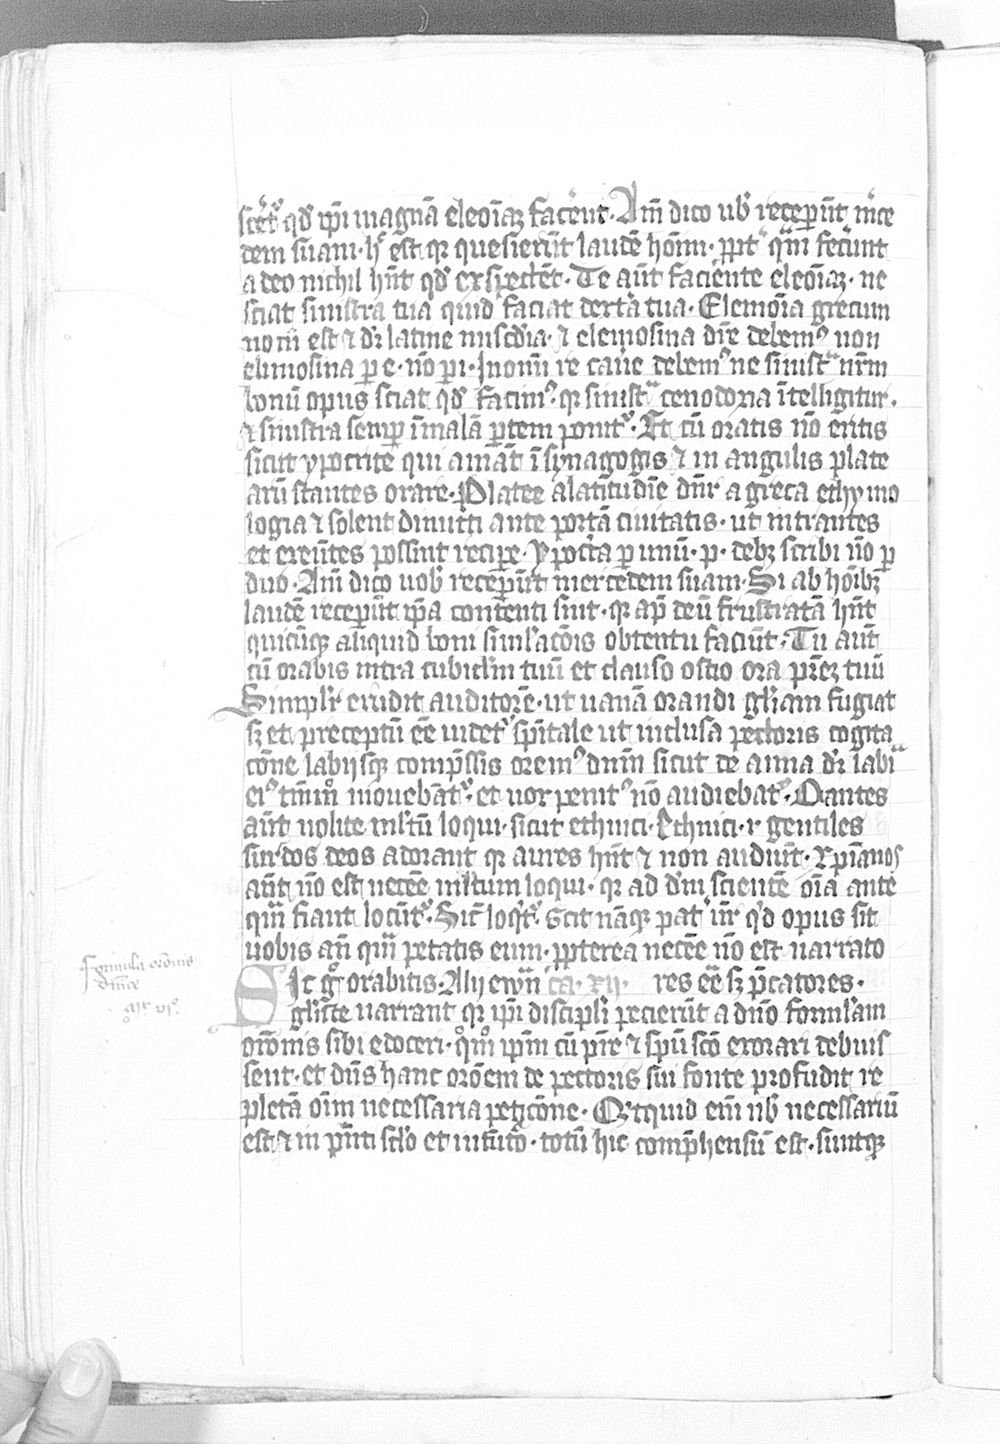 scēt᷑ qd' ip̄i magnā eleoīaꝫ facēnt. Am̄ dico uob' recep̄ūt m'ce
dem suam. h' est qꝛ quesierūt laudē hoīm. ꝓpt' qᵃm fecūnt
a deo nichil hn̄t qd' exspectēt. Te aūt faciente eleoīaꝫ. ne
sciat sinistra tua quid faciat dextra tua. Elemoīa grecum
nomē est ⁊ dr̄ latine miscd'ia. ⁊ elemosina dic̄e debemꝰ non
elimosina ꝑ e. nō ꝑ i. In om̄i re caue' debemꝰ ne sinistᵃ nr̄m
bonū opus sciat qd' facimꝰ. qꝛ sinistᵃ cenodoxia ītelligitur.
⁊ sinistra semꝑ ī malā ꝑtem ponit᷑. Et cū oratis nō eritis
sicut ypocrite qui amāt ī synagogis ⁊ in angulis plate
arū stantes orare. Platee a latitudīe dn̄r a greca ethymo
logia ⁊ solent dimitti ante portā ciuitatis. ut intrantes
et exeūtes possint recipe. Ypoc'ta ꝑ unū. p. debꝫ scribi nō ꝑ
duo. Am̄ dico uob' recep̄ūt mercedem suam. Si ab hoībꝫ
laudē recep̄ūt ip̄a contenti sint. qꝛ ap̄ deū frustratā hn̄t
quicūqꝫ aliquid boni siml'acōis obtentu faciūt. Tu aūt
cū orabis intra cubicl'm tuū et clauso ostio ora pr̄eꝫ tuū
Simpl'r erudit auditorē. ut uanā orandi gl'iam fugiat
sꝫ et preceptū eē uidet᷑ sp̄itale ut inclusa pectoris cogita
cōne labijsqꝫ comp̄ssis oremꝰ dn̄m sicut de anna dr̄ labiᵃ
eiꝰ tm̄mō mouebāt᷑. et uox penitꝰ nō audiebat᷑. Orantes
aūt nolite ml'tū loqui. sicut ethnici. Ethnici. i. gentiles
surdos deos adorant qꝛ aures hn̄t ⁊ non audiūt. Xp̄ianos
aūt nō est necēe ml'tum loqui. qꝛ ad d'm scientē oīa ante
qᵃm fiant locūt᷑. Sic' loqt᷑. Scit nāqꝫ pat' ur̄ qd' opus sit
uobis an̄ qᵃm petatis eum. ꝓpterea necēe nō est narrato
Formula orōnis
dn̄ice
Mt' vi°.
SIc gͦ orabitis. Alij ewan̄ ca. xij. res eē sꝫ p̄catores.
gl'iste narrant qꝛ ip̄i discipl'i pecierūt a dn̄o forml'am
orōnis sibi edoceri. qͦmō ip̄m cū pr̄e ⁊ sp̄ū scō exorari debuis
sent. et dn̄s hanc orōem de pectoris sui fonte profudit re
pletā oīm necessaria peticōne. Qꝛ quid em̄ nob' necessariū
est ⁊ in p̄nti sclo et in futo. totū hic comp̄hensū est. suntqꝫ